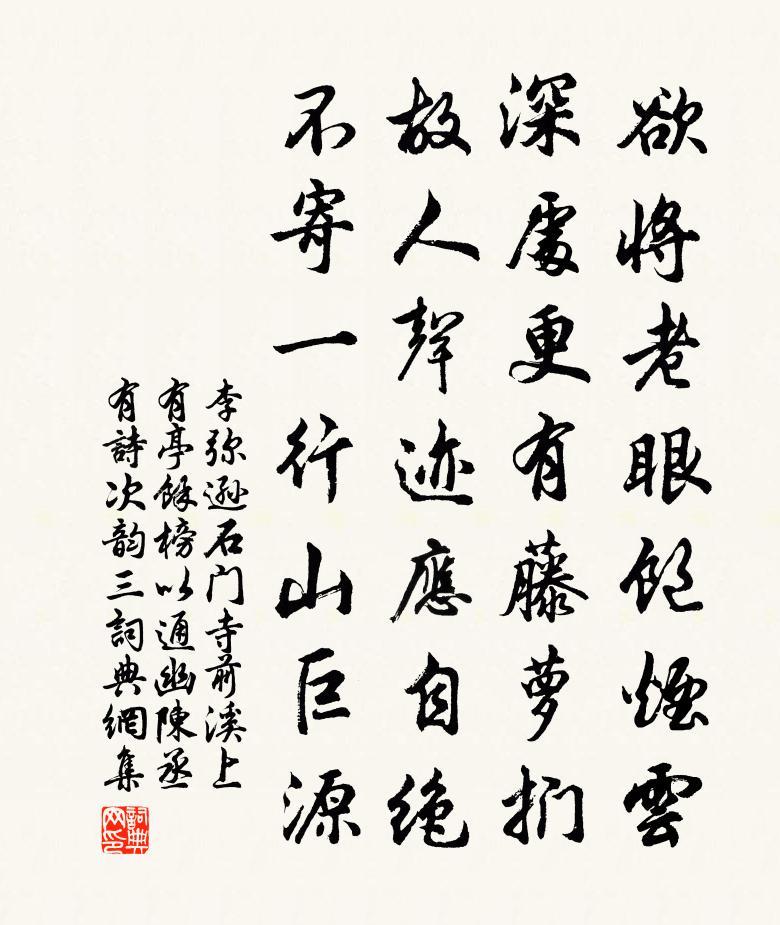 欲將老眼飽煙雲
深處更有藤萝捫
故人聲迹應自絶
不寄一行山巨源
李弥遜石门寺前溪上
有亭餘榜以通幽陳丞
有詩次韵三詞典網集
詞典网印